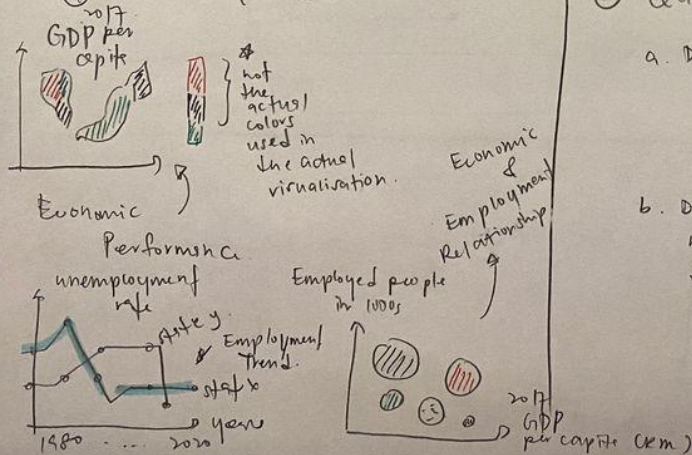 2017
GDP per
capita
* not
the
actual
colors
used in
the actual
visualisation.
Economic
Performance
unemployment
rate
state y
Employment
Trend.
state x
years
1980 .... 2020
Employed people
in 1000s
Economic
&
Employment
Relationship
2017
GDP
per capita (RM)
a. D
b. D